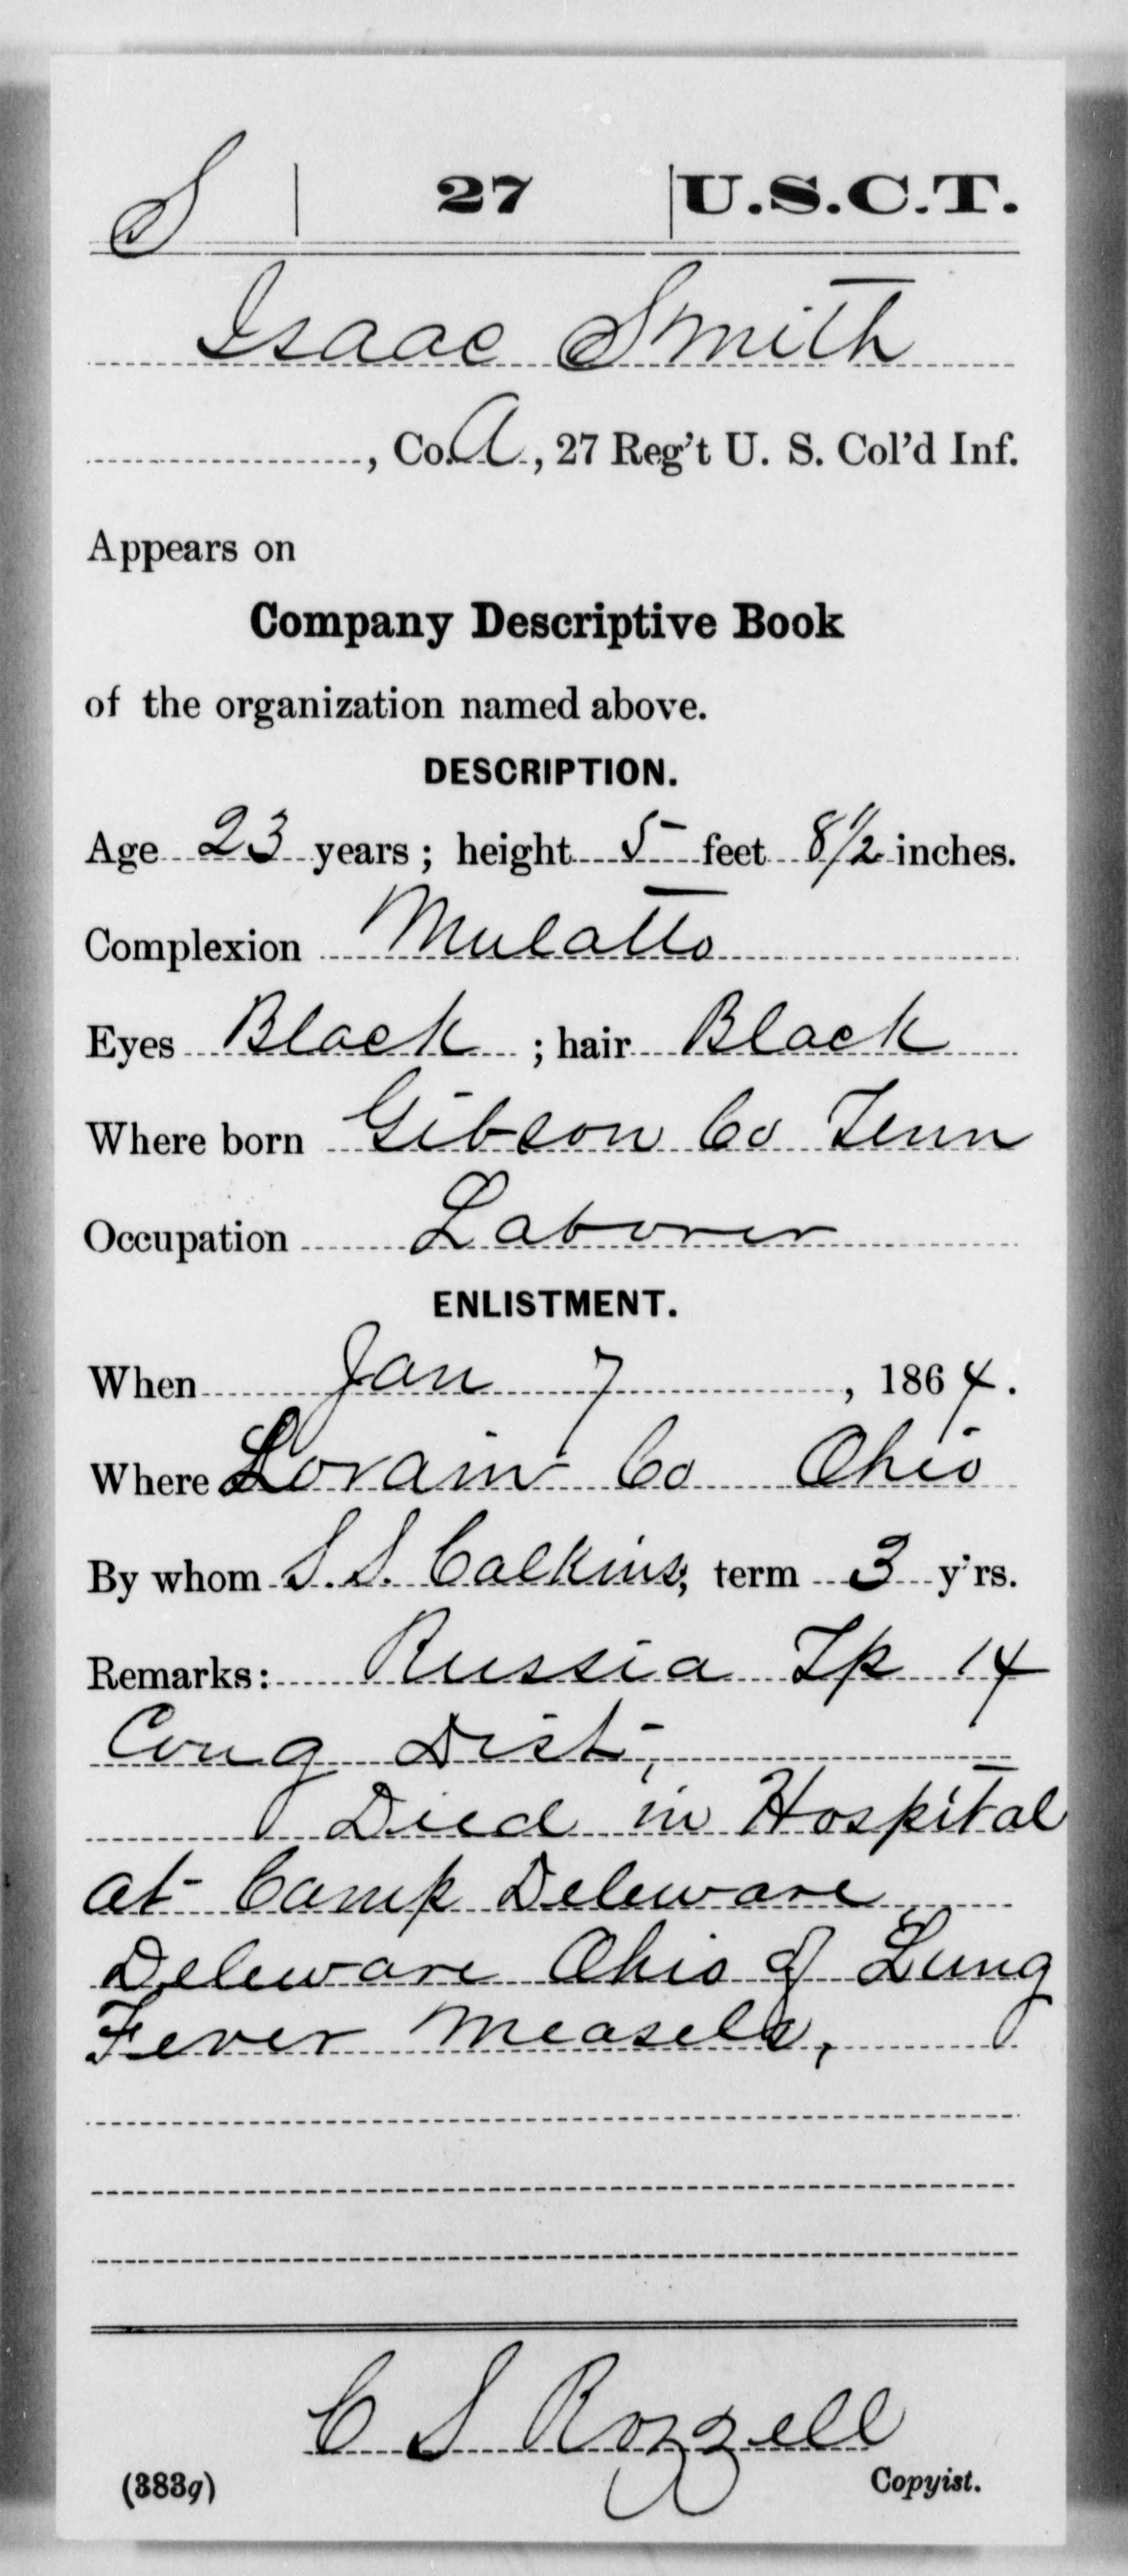 S | 27 | U.S.C.T.
Isaac Smith
, Co. A, 27 Reg't U. S. Col'd Inf.
Appears on
Company Descriptive Book
of the organization named above.
DESCRIPTION.
Age 23 years; height 5 feet 8 1/2 inches.
Complexion Mulatto
Eyes Black ; hair Black
Where born Gibson Co Tenn
Occupation Laborer
ENLISTMENT.
When Jan 7, 1864.
Where Lorain Co Ohio
By whom S. S. Calkins; term 3 y'rs.
Remarks: Russia Tp 14
Cong Dist,
Died in Hospital
at Camp Deleware,
Deleware Ohio of Lung
Fever Measels,
C S Rozzell
(383g) Copyist.